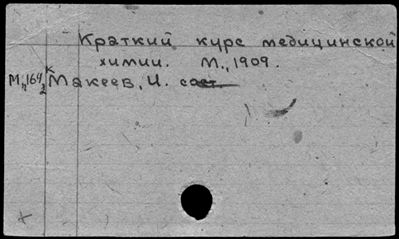 Краткий курс медицинской
химии. М., 1909.
Макеев, И. сост.